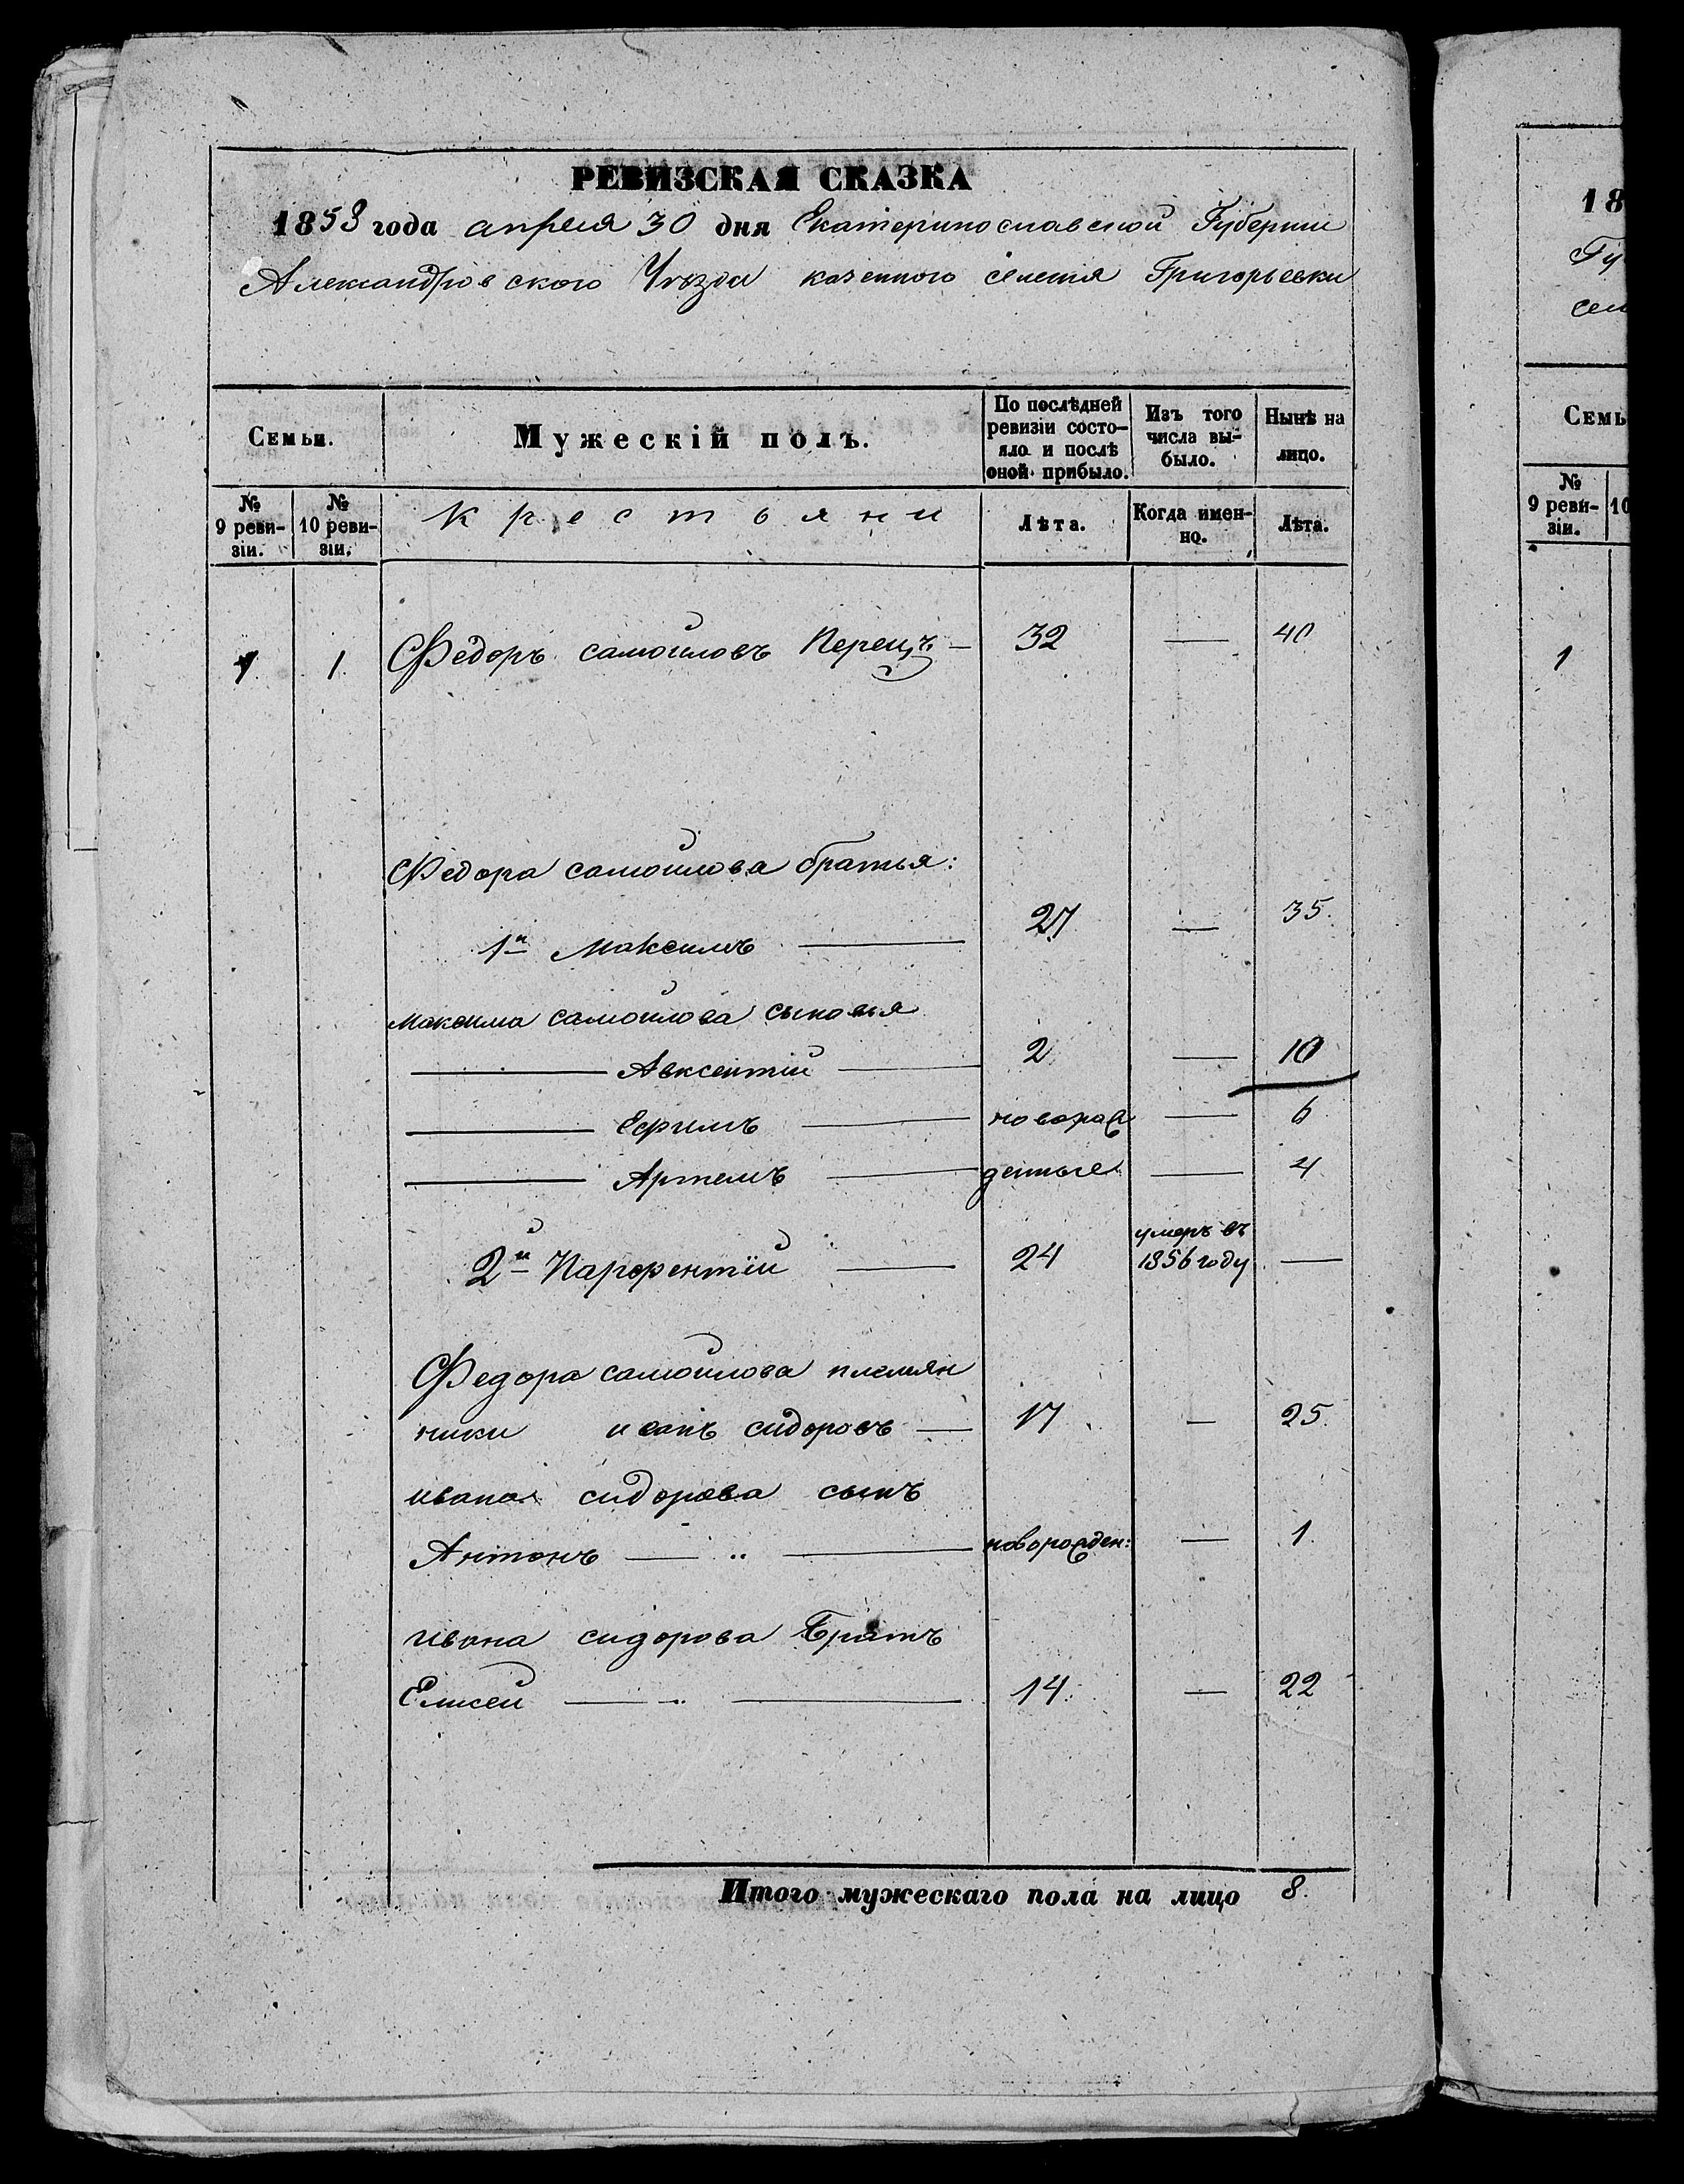 РЕВИЗСКАЯ СКАЗКА
1858 года апреля 30 дня Екатеринославской Губернии
Александровского Уѣзда казенного селения Григорьевки
Семьи.
Мужескій полъ.
По послѣдней ревизіи состо-
яло и послѣ
оной прибыло.
Изъ того
числа вы-
было.
Нынѣ на
лицо.
№
9 реви-
зіи.
№
10 реви-
зіи.
Крестьяни
Лѣта.
Когда имен-
но.
Лѣта.
1 1. Федоръ самойловъ Перецъ — 32 — 40
Федора самойлова братья:
1й Максимъ — 27 — 35.
Максима самойлова сыновья
— Авксентій — 2 — 10
— Ефимъ — новорож — 6
— Артемъ — денные — 4
2й Парфентій — 24 умеръ въ
1856 году —
Федора самойлова племян
ники иванъ сидоровъ — 17 — 25.
ивана сидорова сынъ
Антонъ — „ — новорожден: — 1.
ивана сидорова Братъ
Елисей — „ — 14. — 22
Итого мужескаго пола на лицо 8.
18
Гу
сел
Семь
№
9 реви-
зіи.
10
1